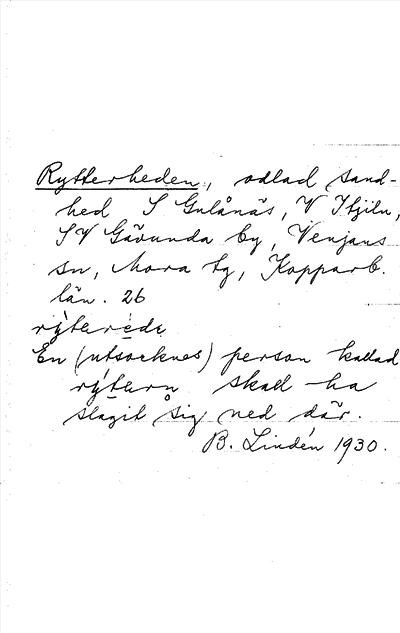 Rytterheden, odlad sand-
hed S Gulånäs, V Itjiln,
SV Gävunda by, Venjans
sn, Mora tg, Kopparb.
län. 26
rýterede
En (utsocknes) person kallad
rýtern skall ha
slagit sig ned där.
B. Lindén 1930.